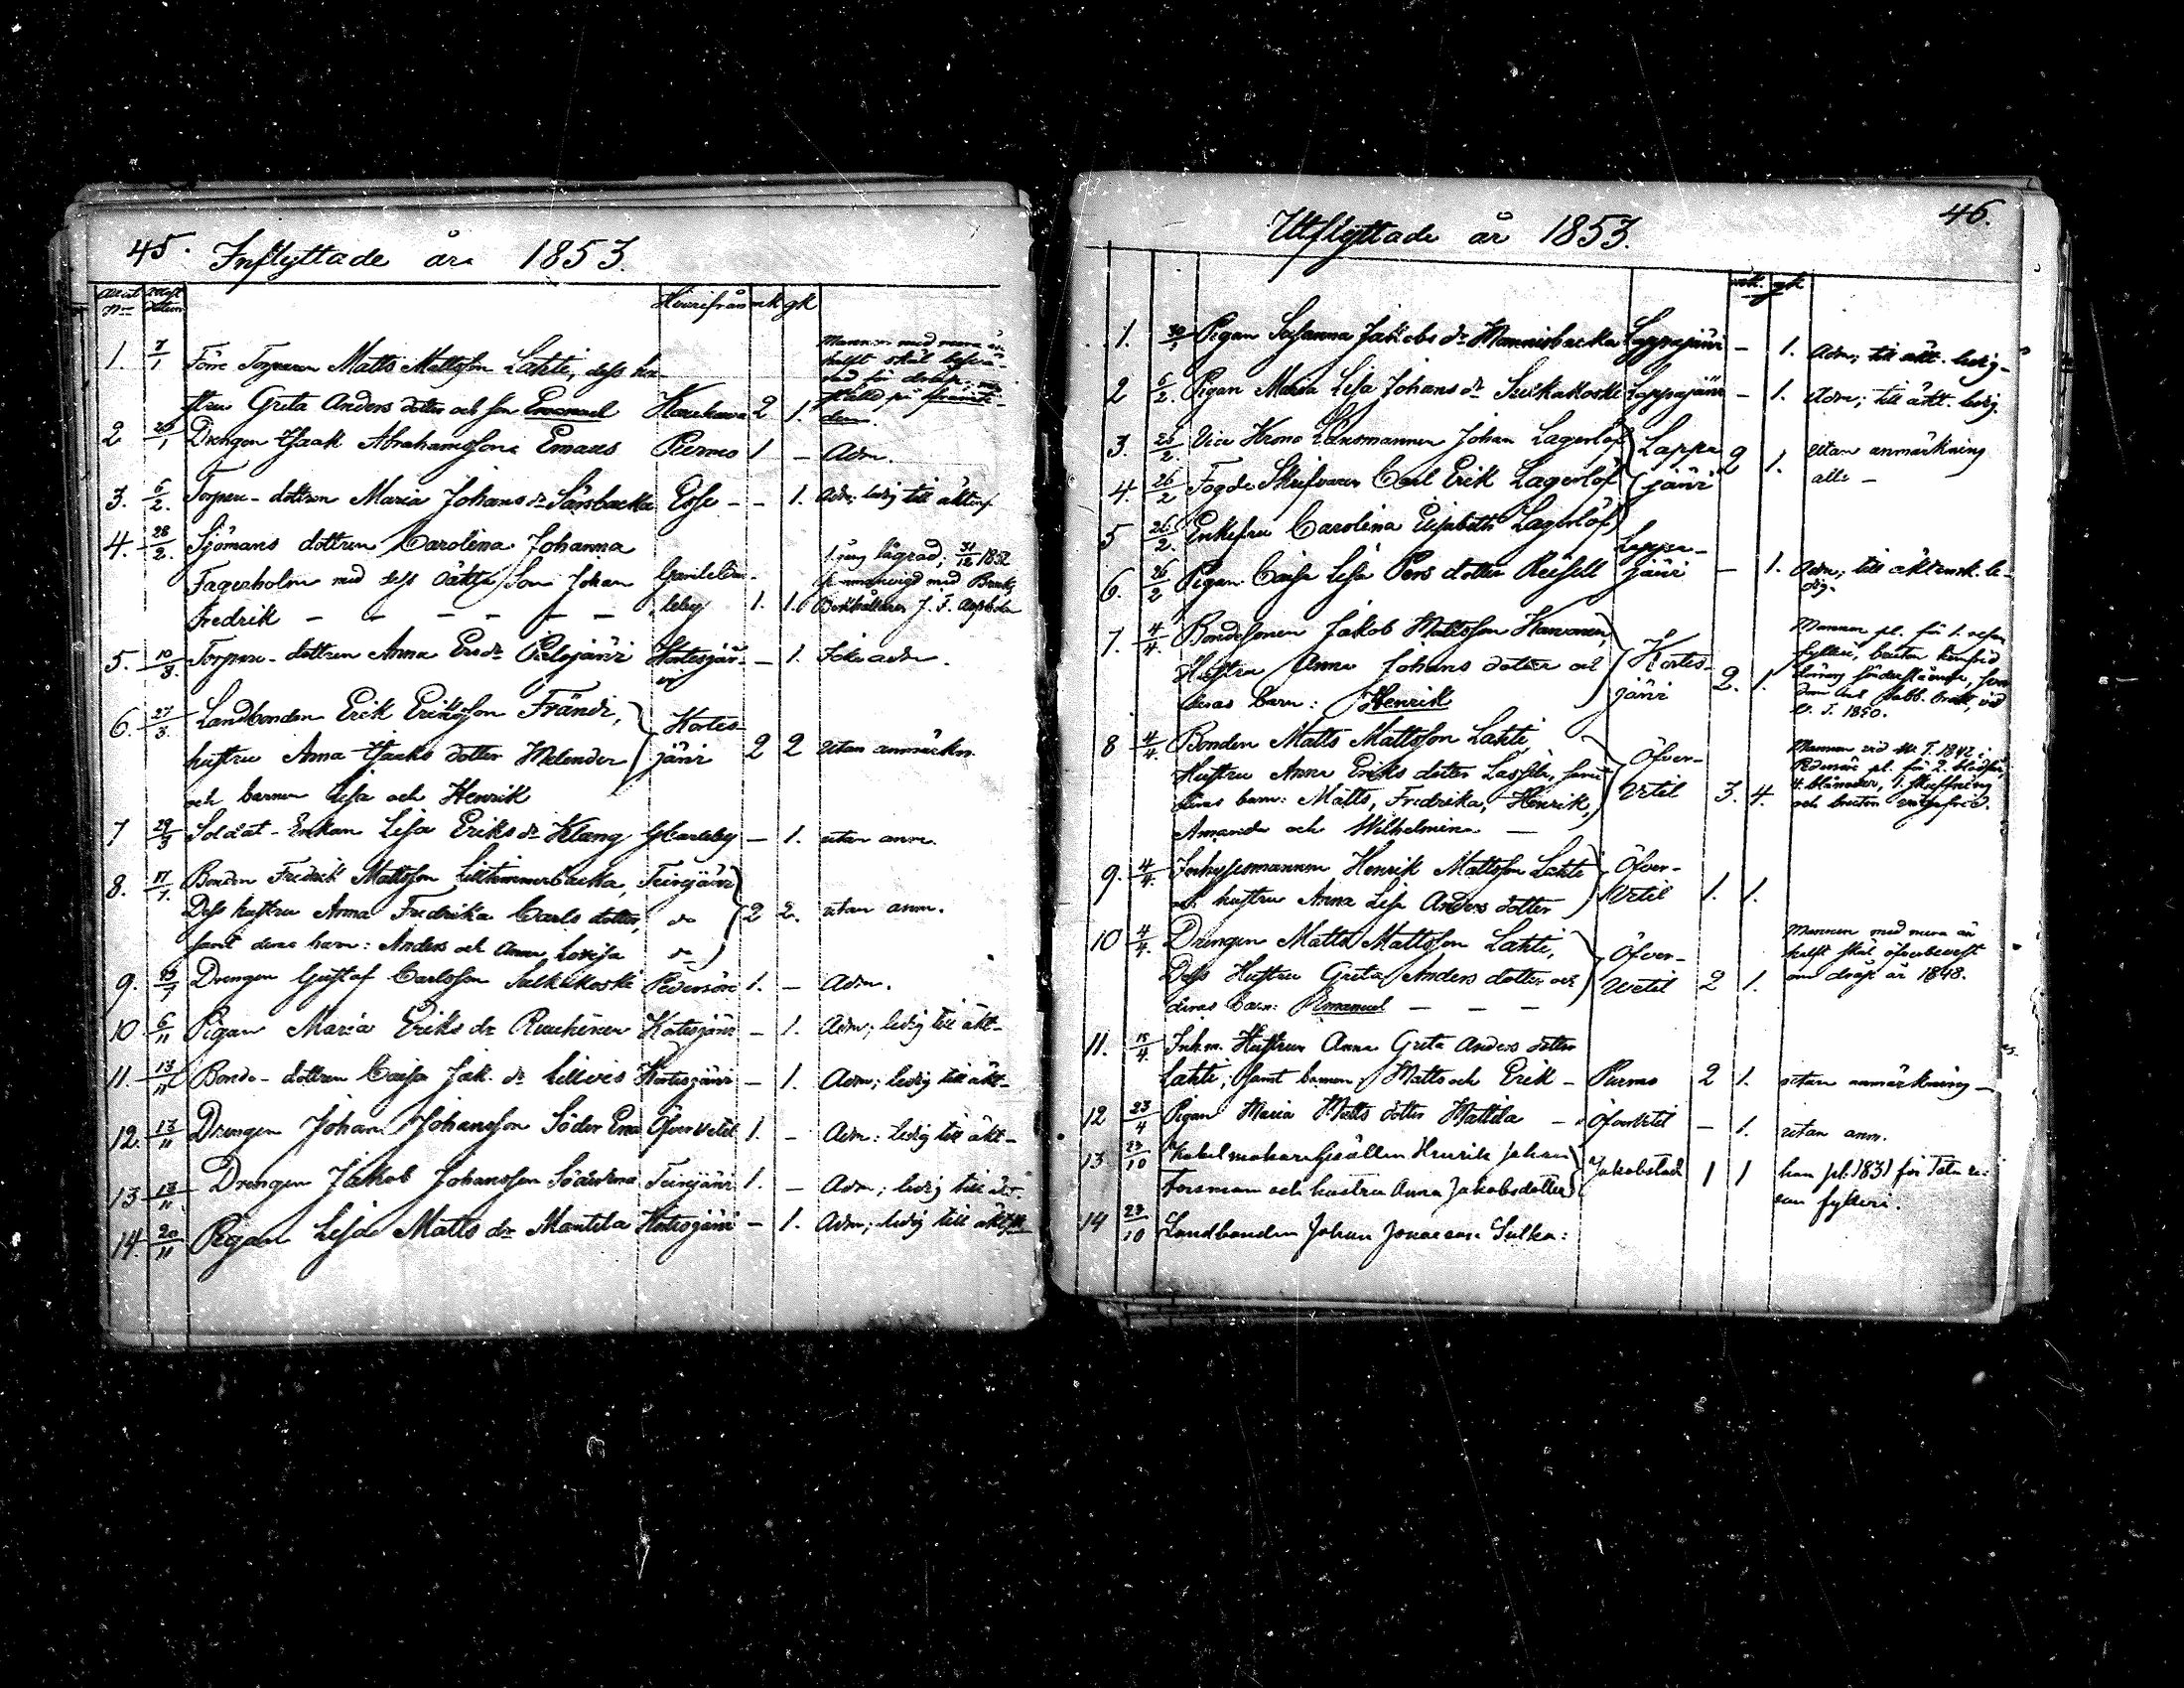 45. Inflyttade år 1853.
Hvarifrån mk gk
1. 7/1 Förre Torparen Matts Mattsson Lahti, dess hu-
stru Greta Anders dotter och son Emanuel Kauhava 2 1.
Mannen med mera än
halft skäl
dom.
2 /1 Drengen Isaak Abrahamsson Emaus Purmo 1 – Adm.
3. 6/2. Torpare-dottren Maria Johans dr Särsbacka Esse – – 1. Adm; ledig till äktensk.
4. 28/2. Sjömans dottren Carolina Johanna
Fagerholm med dess oäkta Son Johan Gamlakar-
Fredrik – – – – – – leby 1. 1.
1. gång lägrad; 31/12 1852
5. 10/3. Torpare-dottren Anna Ers dr Palojärvi Kortesjär- – 1. adm.
vi
6. 27/3. Landbonden Erik Eriksson Frände,
hustru Anna Isaks dotter Melender
och barnen Lisa och Henrik
Kortes-
järvi 2 2 utan anmärkn.
7 29/3 Soldat-Enkan Lisa Eriks dr Klang GCarleby – 1. utan anm.
8. 17/7. Bonden Fredrik Mattsson Lilltimmerbacka, Terijärvi
Dess hustru Anna Fredrika Carls dotter, do 2 2. utan anm.
samt deras barn: Anders och Anna Lovisa do
9. /7 Drengen Gustaf Carlsson Sulkakoski Pedersöre 1. – Adm.
10. 6/11 Pigan Maria Eriks dr Kortesjärvi – 1. Adm; ledig till äkt-
11. 13/11 Bonde-dottren Caisa Jak. dr Lillvis Kortesjärvi – 1. Adm; ledig till äkt-
12. 13/11 Drengen Johan Johansson Söder Ena Öfvervetil 1. – Adm: ledig till äkt-
13 13/11. Drengen Jakob Johansson Söderena Terijärvi 1. – Adm; ledig till äkt-
14. 20/11 Pigan Lisa Matts dr Mantila Kortesjärvi – 1. Adm; ledig till äktsk.
46.
Utflyttade år 1853.
mk. gk
1. 30/1 Pigan Susanna Jakobs dr Mannisbacka Lappajärvi – 1. Adm; till äkt. ledig-
2 6/2. Pigan Maria Lisa Johans dr Sulkakoski Lappajärvi – 1. Adm; till äkt. ledig.
3. 26/2. Vice Krono Länsmannen Johan Lagerlöf
4. 26/2 Fogde Skrifvaren Carl Erik Lagerlöf
5 26/2. Enkefru Carolina Elisabeth Lagerlöf
Lappa
järvi 2 1. utan anmärkning
alle –
6. 26/2 Pigan Caisa Lisa Pers dotter Lappa-
järvi – 1. Adm; till äktensk. le-
dig.
7. 4/4. Bondesonen Jakob Mattsson
Hustru Anna Johans dotter och
deras barn: Henrik
Kortes-
järvi 2. 1.
Mannen pl. för 1. resan
fylleri,
1850.
8 4/4. Bonden Matts Mattsson Lahti
Hustru Anna Eriks dotter Lassila, samt
deras barn: Matts, Fredrika, Henrik,
Amanda och Wilhelmina –
Öfver-
Vetil 3. 4.
Mannen vid W. T. 1842 i
Pedersöre pl. för 2.
4. blånader, 1.
och
9. 4/4. Inhysesmannen Henrik Mattsson Lahti
och hustru Anna Lisa Anders dotter
Öfver-
Vetil 1. 1.
10 4/4. Drengen Matts Mattsson Lahti,
Dess Hustru Greta Anders dotter och
deras barn: Emanuel – – –
Öfver-
Vetil 2 1.
Mannen med mera än
halft skäl öfverbevist
om dråp år 1848.
11. 15/4. Inh.m. Hustrun Anna Greta Anders dotter
Lahti; samt barnen Matts och Erik – Purmo 2 1. utan anmärkning –
12 23/4 Pigan Maria Matts dotter Mattila – Öfvervetil – 1. utan anm.
13 23/10 Kakelmakare Gesällen Henrik Johan
Forsman och hustru Anna Jakobsdotter Jakobstad 1 1 han pl. 1831 för 1sta re-
san fylleri.
14 23/10 Landbonden Johan Jonasson Sulka: